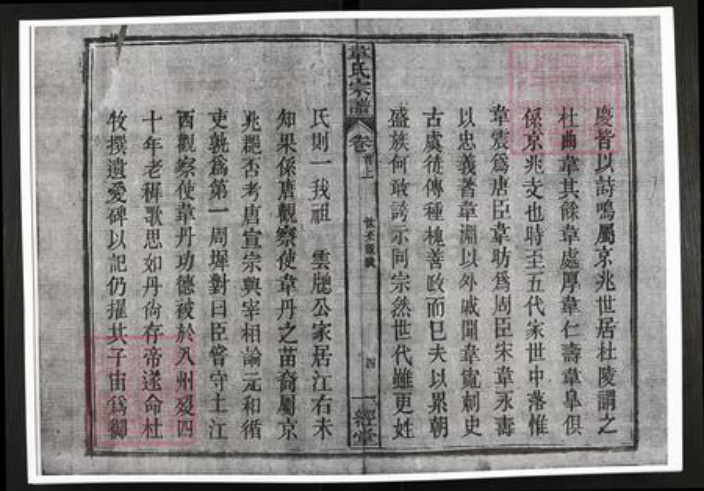 慶皆以詩鳴屬京兆世居杜陵謂之
杜曲韋其餘韋處厚韋仁壽韋皋俱
係京兆支也時至五代家世中落惟
韋震爲唐臣韋昉爲周臣宋韋永壽
以忠義著韋淵以外戚聞韋寬刺史
古虞徒傳種槐善政而已夫以累朝
盛族何敢誇示同宗然世代雖更姓
韋氏宗譜
卷首上
四
一經堂
氏則一我祖 雲牕公家居江右未
知果係唐觀察使韋丹之苗裔屬京
兆郡否考唐宣宗與宰相論元和循
吏孰爲第一周墀對曰臣嘗守土江
西觀察使韋丹功德被於八州歿四
十年老稚歌思如丹尙存帝遂命杜
牧撰遺愛碑以記仍擢其子宙爲御